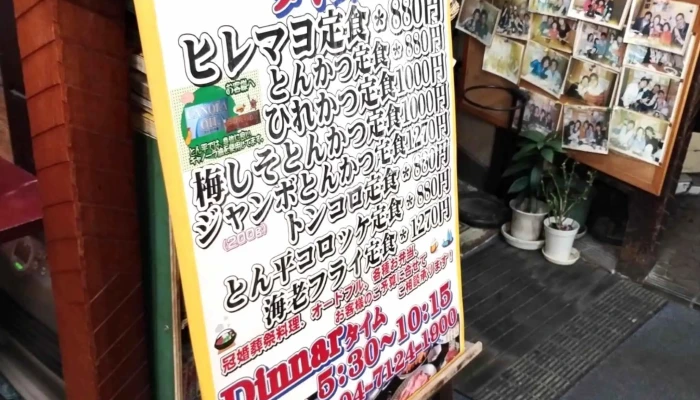 ヒレマヨ定食＊880円
とんかつ定食＊880円
ひれかつ定食1000円
梅しそとんかつ定食1000円
ジャンボとんかつ定食1270円
トンコロ定食＊880円
とん平コロッケ定食＊880円
海老フライ定食＊1270円
お客様へ
冠婚葬祭料理、オードブル、各種お弁当、
お客様のご予算に合せて
ご相談承ります！
Dinnarタイム
5:30～10:15
04-7124-1900